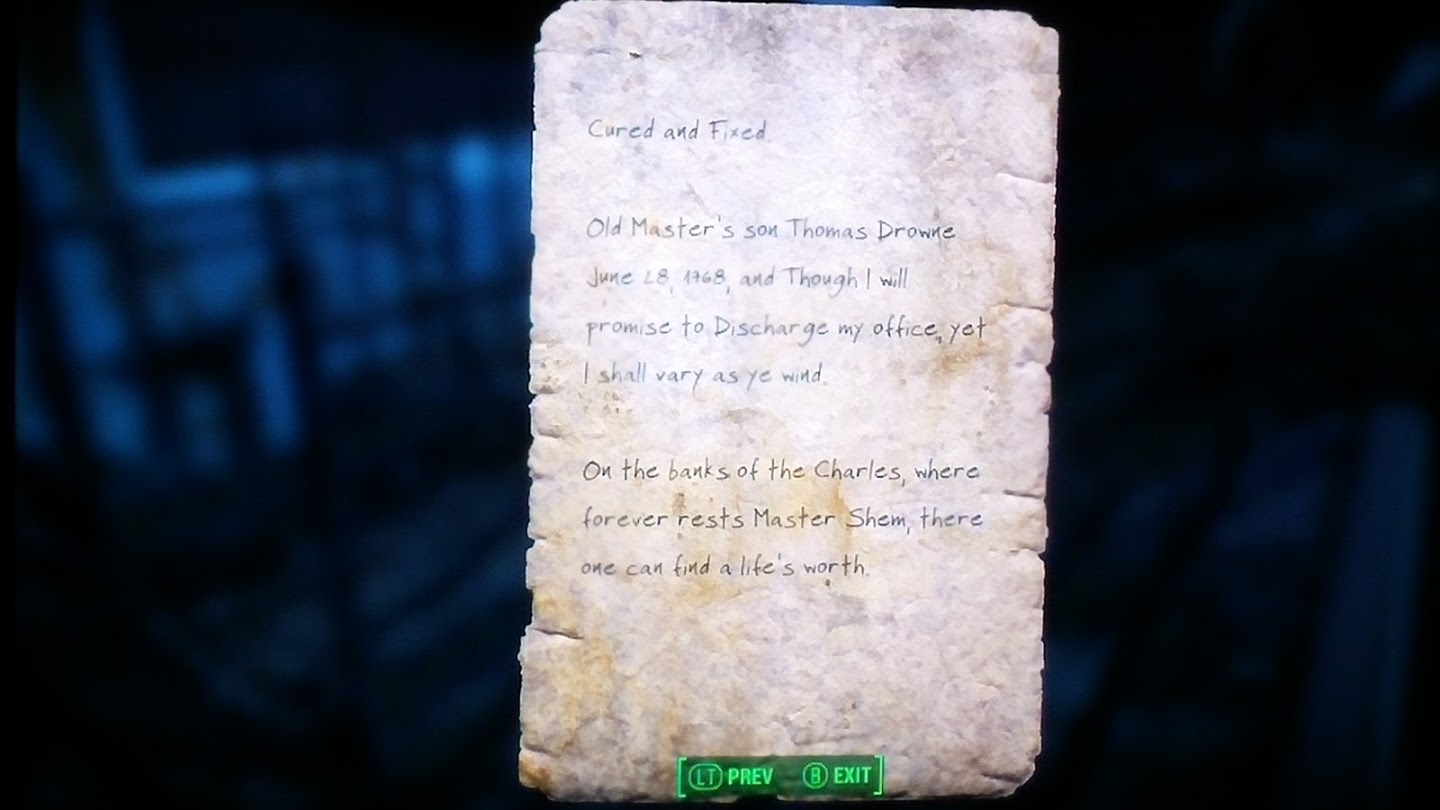 Cured and Fixed.
Old Master's son Thomas Drowne
June 28, 1768, and Though I will
promise to Discharge my office, yet
I shall vary as ye wind.
On the banks of the Charles, where
forever rests Master Shem, there
one can find a life's worth.
LT PREV B EXIT